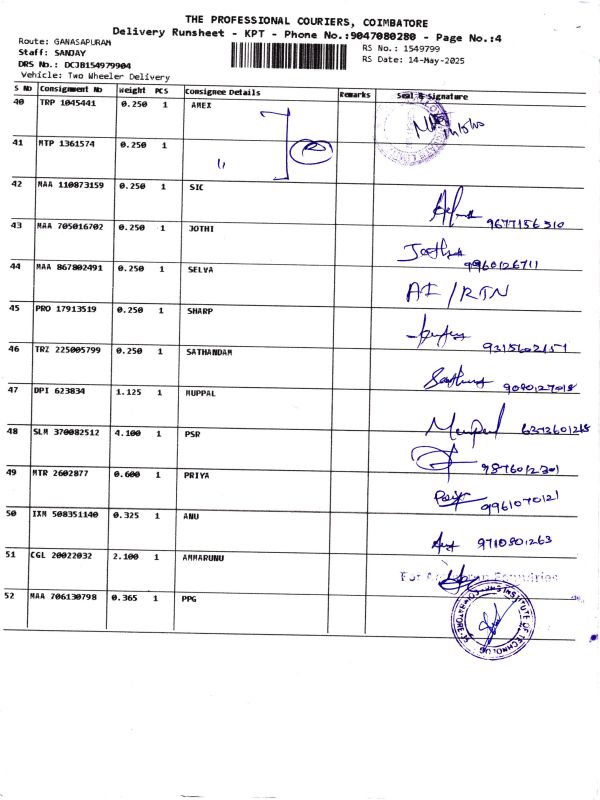 THE PROFESSIONAL COURIERS, COIMBATORE
Delivery Runsheet - KPT - Phone No.:9047080280 - Page No.:4
Route: GANASAPURAM
Staff: SANJAY
DRS No.: DCJB154979904
Vehicle: Two Wheeler Delivery
RS No.: 1549799
RS Date: 14-May-2025
S No Consignment No Weight PCS Consignee Details Remarks Seal & Signature
40 TRP 1045441 0.250 1 AMEX
41 MTP 1361574 0.250 1 "
42 MAA 110873159 0.250 1 SIC 9677156310
43 MAA 705016702 0.250 1 JOTHI 9960126711
44 MAA 867802491 0.250 1 SELVA AI/RTN
45 PRO 17913519 0.250 1 SHARP 9315602151
46 TRZ 225005799 0.250 1 SATHANDAM
47 DPI 623834 1.125 1 MUPPAL
48 SLM 370082512 4.100 1 PSR 9876012301
49 MTR 2602877 0.600 1 PRIYA 9961070121
50 IXM 508351140 0.325 1 ANU 9710801263
51 CGL 20022032 2.100 1 AMMARUNU
52 MAA 706130798 0.365 1 PPG
INSTITUTE OF TECHNOLOG